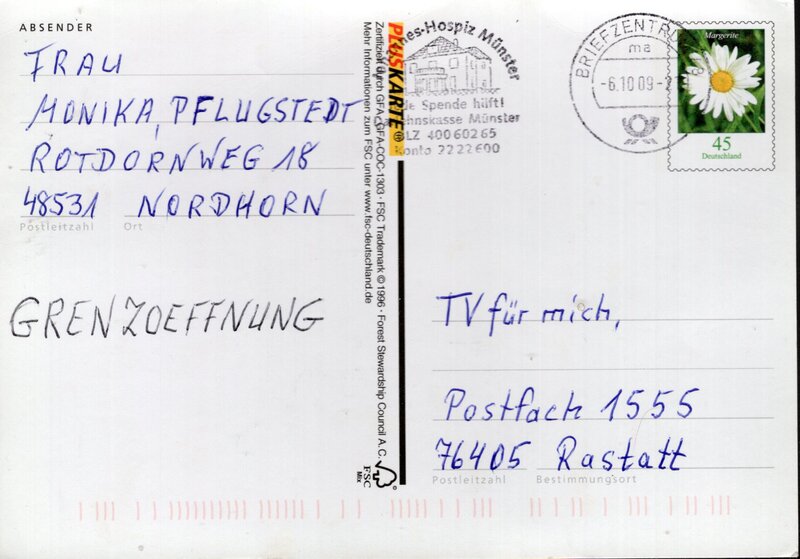 ABSENDER
FRAU
MONIKA PFLUGSTEDT
ROTDORNWEG 18
48531 NORDHORN
Postleitzahl Ort
GRENZOEFFNUNG
PlusKARTE
Zertifiziert durch GFA, GFA-COC-1303 · FSC Trademark © 1996 · Forest Stewardship Council A.C.
Mehr Informationen zum FSC unter www.fsc-deutschland.de
FSC
Mix
nes-Hospiz Münster
de Spende hilft!
hnskasse Münster
LZ 400 602 65
Konto 22 22 600
BRIEFZENTRU
ma
-6.10.09-
Margerite
45
Deutschland
TV für mich,
Postfach 1555
76405 Rastatt
Postleitzahl Bestimmungsort